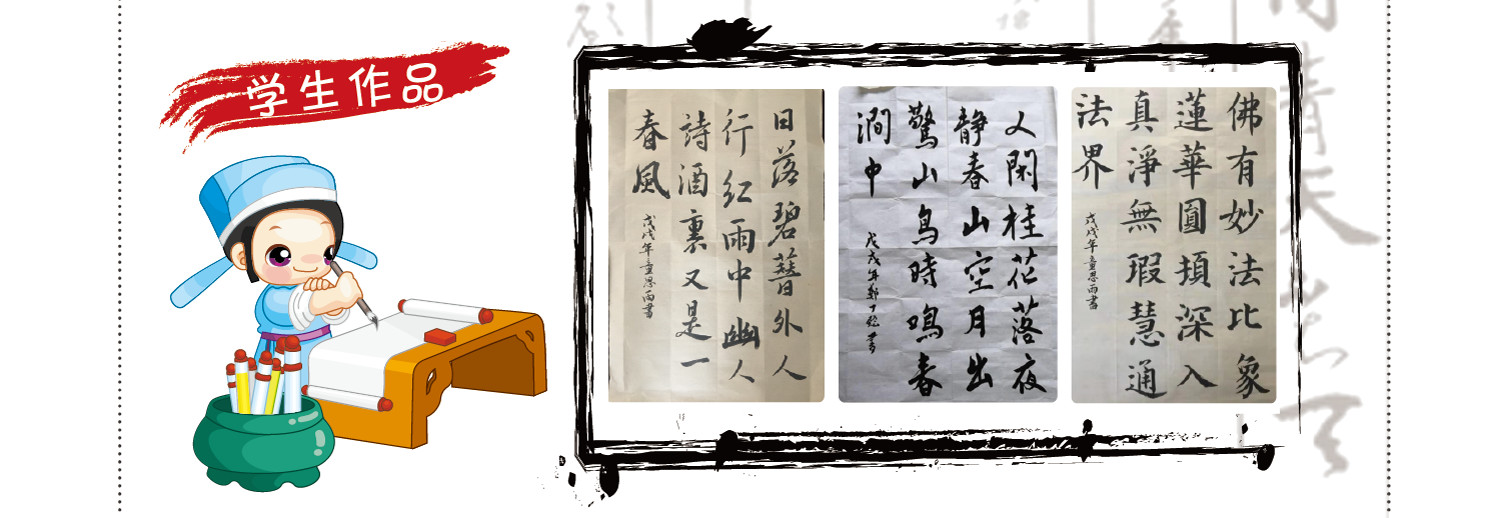 学生作品
日落碧簪外人
行红雨中幽人
詩酒裏又是一
春風
戊戌年童思雨書
人閑桂花落夜
静春山空月出
驚山鳥時鳴春
澗中
戊戌年鄭丁書
佛有妙法比象
蓮華圓頂深入
真淨無瑕慧通
法界
戊戌年童思雨書